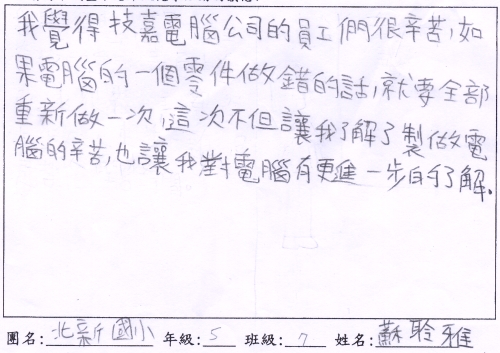 我覺得技嘉電腦公司的員工們很辛苦,如
果電腦的一個零件做錯的話,就要全部
重新做一次,這次不但讓我了解了製做電
腦的辛苦,也讓我對電腦有更進一步的了解.
團名: 北新國小 年級: 5 班級: 7 姓名: 蘇聆雅